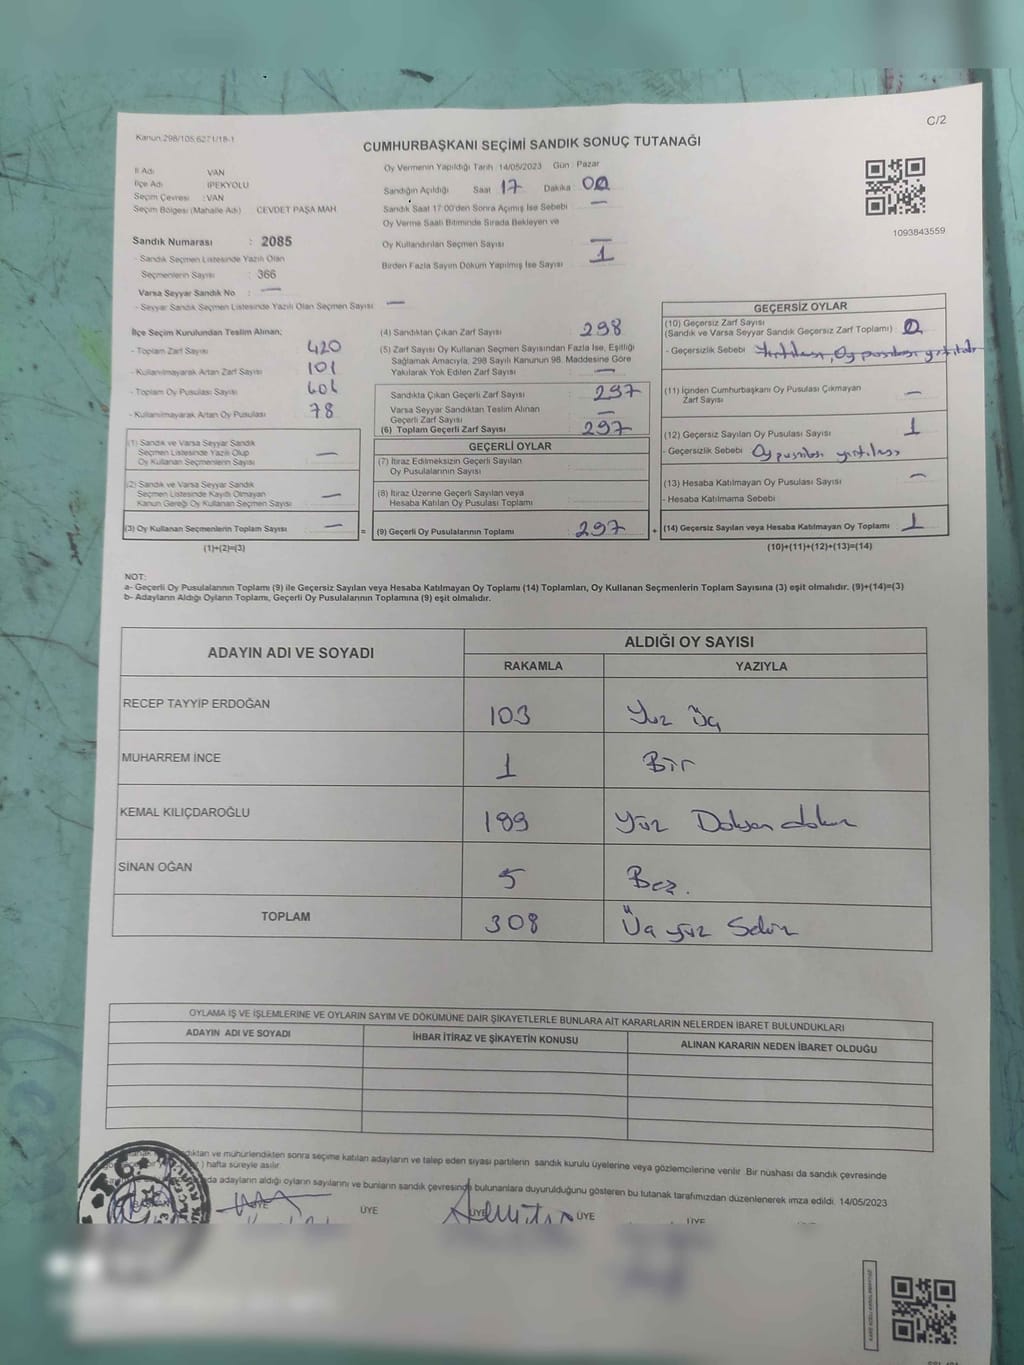 C/2
Kanun:298/105,6271/18-1
CUMHURBAŞKANI SEÇİMİ SANDIK SONUÇ TUTANAĞI
İl Adı VAN
İlçe Adı İPEKYOLU
Seçim Çevresi : VAN
Seçim Bölgesi (Mahalle Adı) CEVDET PAŞA MAH
Sandık Numarası : 2085
- Sandık Seçmen Listesinde Yazılı Olan
Seçmenlerin Sayısı : 366
Varsa Seyyar Sandık No : —
- Seyyar Sandık Seçmen Listesinde Yazılı Olan Seçmen Sayısı : —
Oy Vermenin Yapıldığı Tarih :14/05/2023 Gün : Pazar
Sandığın Açıldığı Saat 17 Dakika 00
Sandık Saat 17:00'den Sonra Açımış İse Sebebi : —
Oy Verme Saati Bitiminde Sırada Bekleyen ve
Oy Kullandırılan Seçmen Sayısı : —
Birden Fazla Sayım Döküm Yapılmış İse Sayısı : 1
1093843559
İlçe Seçim Kurulundan Teslim Alınan;
- Toplam Zarf Sayısı : 420
- Kullanılmayarak Artan Zarf Sayısı : 101
- Toplam Oy Pusulası Sayısı
- Kullanılmayarak Artan Oy Pusulası : 78
(1) Sandık ve Varsa Seyyar Sandık
Seçmen Listesinde Yazılı Olup
Oy Kullanan Seçmenlerin Sayısı : —
(2) Sandık ve Varsa Seyyar Sandık
Seçmen Listesinde Kayıtlı Olmayan
Kanun Gereği Oy Kullanan Seçmen Sayısı : —
(3) Oy Kullanan Seçmenlerin Toplam Sayısı : — =
(1)+(2)=(3)
(4) Sandıktan Çıkan Zarf Sayısı : 298
(5) Zarf Sayısı Oy Kullanan Seçmen Sayısından Fazla İse, Eşitliği
Sağlamak Amacıyla, 298 Sayılı Kanunun 98. Maddesine Göre
Yakılarak Yok Edilen Zarf Sayısı : —
Sandıkta Çıkan Geçerli Zarf Sayısı : 297
Varsa Seyyar Sandıktan Teslim Alınan
Geçerli Zarf Sayısı : —
(6) Toplam Geçerli Zarf Sayısı : 297
GEÇERLİ OYLAR
(7) İtiraz Edilmeksizin Geçerli Sayılan
Oy Pusulalarının Sayısı
(8) İtiraz Üzerine Geçerli Sayılan veya
Hesaba Katılan Oy Pusulası Toplamı
(9) Geçerli Oy Pusulalarının Toplamı : 297 +
GEÇERSİZ OYLAR
(10) Geçersiz Zarf Sayısı
(Sandık ve Varsa Seyyar Sandık Geçersiz Zarf Toplamı) :
- Geçersizlik Sebebi : Yırtılması, Oy pusulası
(11) İçinden Cumhurbaşkanı Oy Pusulası Çıkmayan
Zarf Sayısı : —
(12) Geçersiz Sayılan Oy Pusulası Sayısı : 1
- Geçersizlik Sebebi : Oy pusulası yırtılması
(13) Hesaba Katılmayan Oy Pusulası Sayısı : —
- Hesaba Katılmama Sebebi
(14) Geçersiz Sayılan veya Hesaba Katılmayan Oy Toplamı : 1
(10)+(11)+(12)+(13)=(14)
NOT:
a- Geçerli Oy Pusulalarının Toplamı (9) ile Geçersiz Sayılan veya Hesaba Katılmayan Oy Toplamı (14) Toplamları, Oy Kullanan Seçmenlerin Toplam Sayısına (3) eşit olmalıdır. (9)+(14)=(3)
b- Adayların Aldığı Oyların Toplamı, Geçerli Oy Pusulalarının Toplamına (9) eşit olmalıdır.
ADAYIN ADI VE SOYADI ALDIĞI OY SAYISI
RAKAMLA YAZIYLA
RECEP TAYYİP ERDOĞAN 103 Yüz Üç
MUHARREM İNCE 1 Bir
KEMAL KILIÇDAROĞLU 199 Yüz Doksan dokuz
SİNAN OĞAN 5 Beş.
TOPLAM 308 Üç yüz Sekiz
OYLAMA İŞ VE İŞLEMLERİNE VE OYLARIN SAYIM VE DÖKÜMÜNE DAİR ŞİKAYETLERLE BUNLARA AİT KARARLARIN NELERDEN İBARET BULUNDUKLARI
ADAYIN ADI VE SOYADI İHBAR İTİRAZ VE ŞİKAYETİN KONUSU ALINAN KARARIN NEDEN İBARET OLDUĞU
ve mühürlendikten sonra seçime katılan adayların ve talep eden siyasi partilerin sandık kurulu üyelerine veya gözlemcilerine verilir. Bir nüshası da sandık çevresinde
) hafta süreyle asılır.
adayların aldığı oyların sayılarını ve bunların sandık çevresinde bulunanlara duyurulduğunu gösteren bu tutanak tarafımızdan düzenlenerek imza edildi. 14/05/2023
BAŞKAN ÜYE ÜYE ÜYE ÜYE ÜYE